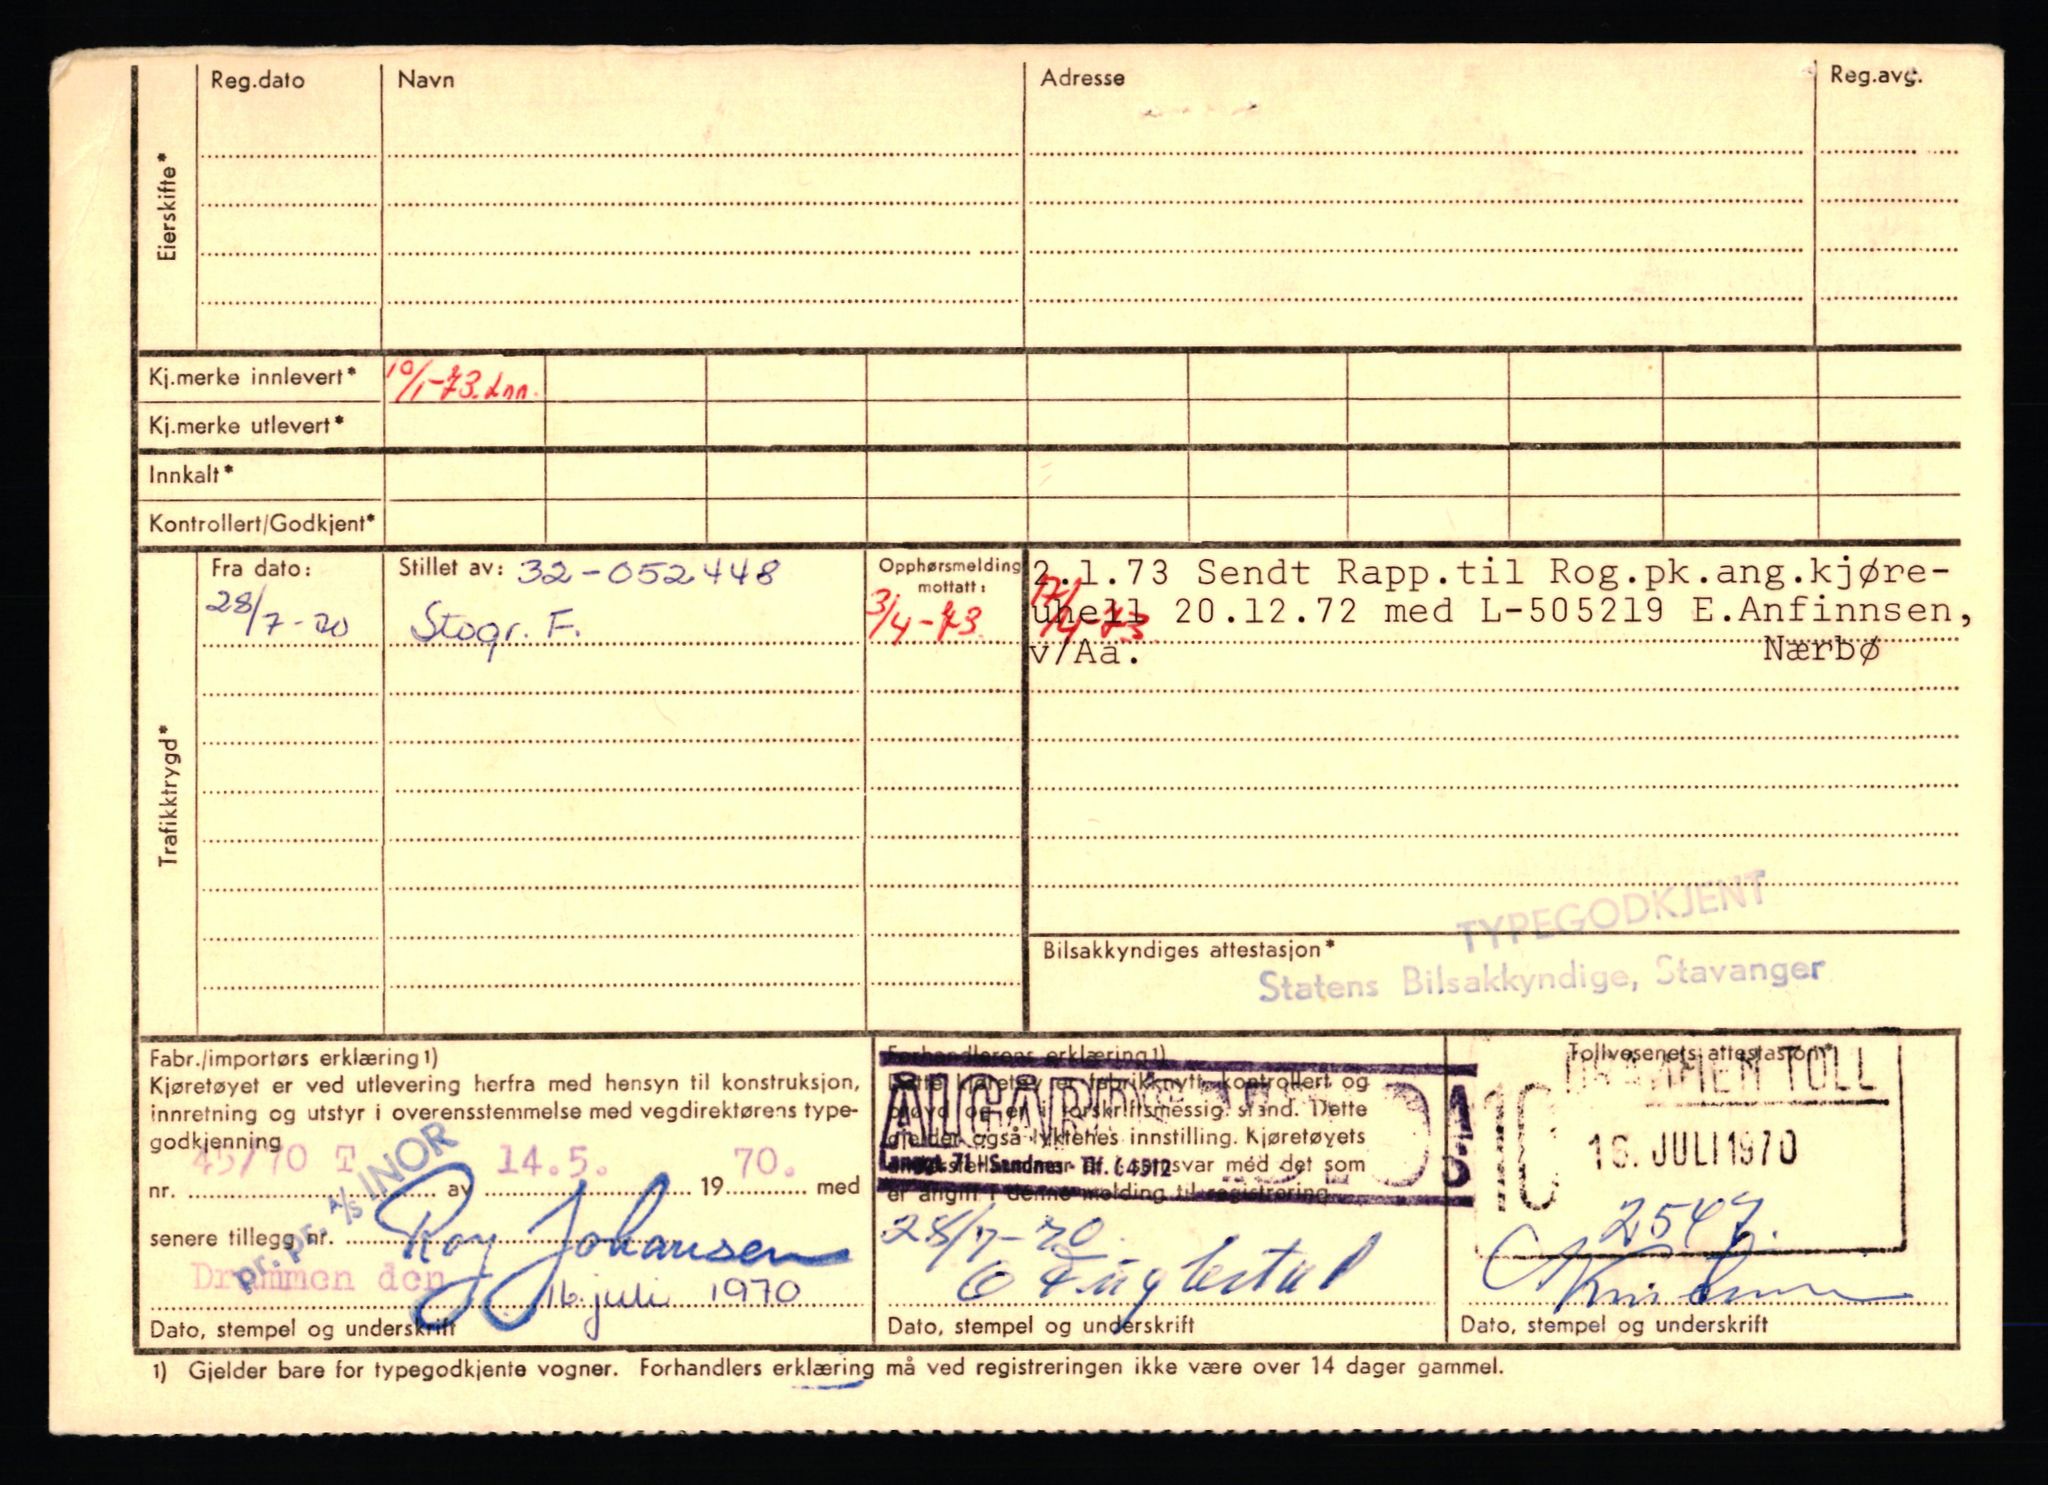 Reg.dato Navn Adresse Reg.avg.
Eierskifte*
Kj.merke innlevert* 10/1-73. Inn.
Kj.merke utlevert*
Innkalt*
Kontrollert/Godkjent*
Trafikktrygd*
Fra dato: Stillet av: 32-052448 Opphørsmelding mottatt:
28/7-70 Stogr. F. 3/4-73 17/4-73
2.1.73 Sendt Rapp.til Rog.pk.ang.kjøre-
uhell 20.12.72 med L-505219 E.Anfinnsen,
v/Aa. Nærbø
TYPEGODKJENT
Bilsakkyndiges attestasjon*
Statens Bilsakkyndige, Stavanger
Fabr./importørs erklæring1)
Kjøretøyet er ved utlevering herfra med hensyn til konstruksjon,
innretning og utstyr i overensstemmelse med vegdirektørens type-
godkjenning
nr. 45/70 T av 14.5. 1970. med
senere tillegg nr.
pr. pr. A/S INOR
Roy Johansen
Drammen den 16. juli 1970
Dato, stempel og underskrift
Forhandlerens erklæring1)
Dette kjøretøy er fabrikknytt, kontrollert og
prøvd og er i forskriftsmessig stand. Dette
gjelder også lyktenes innstilling. Kjøretøyets
ansvar med det som
er angitt i denne melding til registrering.
Langgt. 71 - Sandnes - Tlf. 64512
28/7-70
Dato, stempel og underskrift
Tollvesenets attestasjon*
DRAMMEN TOLL
10
16. JULI 1970
2547.
Dato, stempel og underskrift
1) Gjelder bare for typegodkjente vogner. Forhandlers erklæring må ved registreringen ikke være over 14 dager gammel.